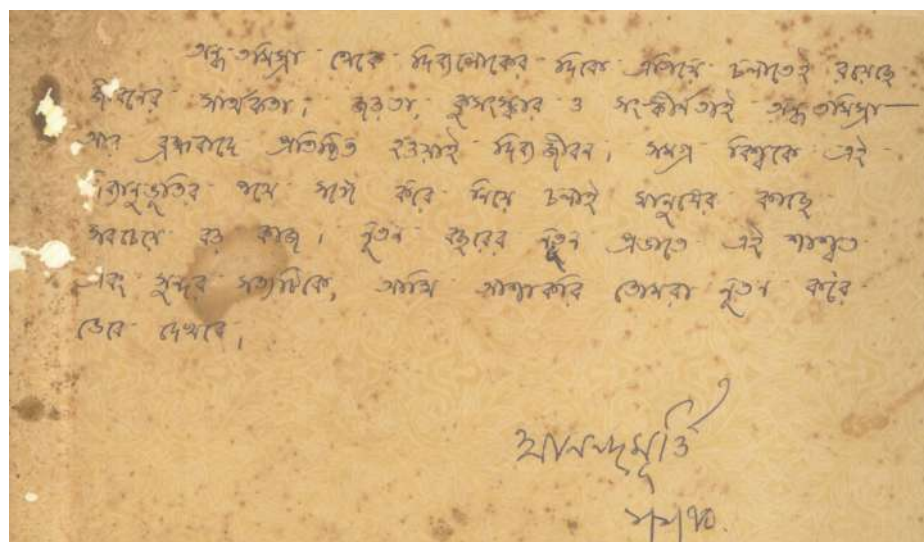 অন্ধতমিস্রা থেকে দিব্যলোকের দিকে এগিয়ে চলাতেই রয়েছে
জীবনের সার্থকতা। জড়তা, কুসংস্কার ও সংকীর্ণতাই অন্ধতমিস্রা—
আর ব্রহ্মবাদে প্রতিষ্ঠিত হওয়াই দিব্যজীবন। সমগ্র বিশ্বকে এই
দিব্যানুভূতির পথে সঙ্গে করে নিয়ে চলাই মানুষের কাছে
সবচেয়ে বড় কাজ। নূতন বছরের নূতন প্রভাতে এই শাশ্বত
এবং সুন্দর সত্যটিকে, আমি আশাকরি তোমরা নূতন করে
ভেবে দেখবে।
আনন্দমূর্ত্তি